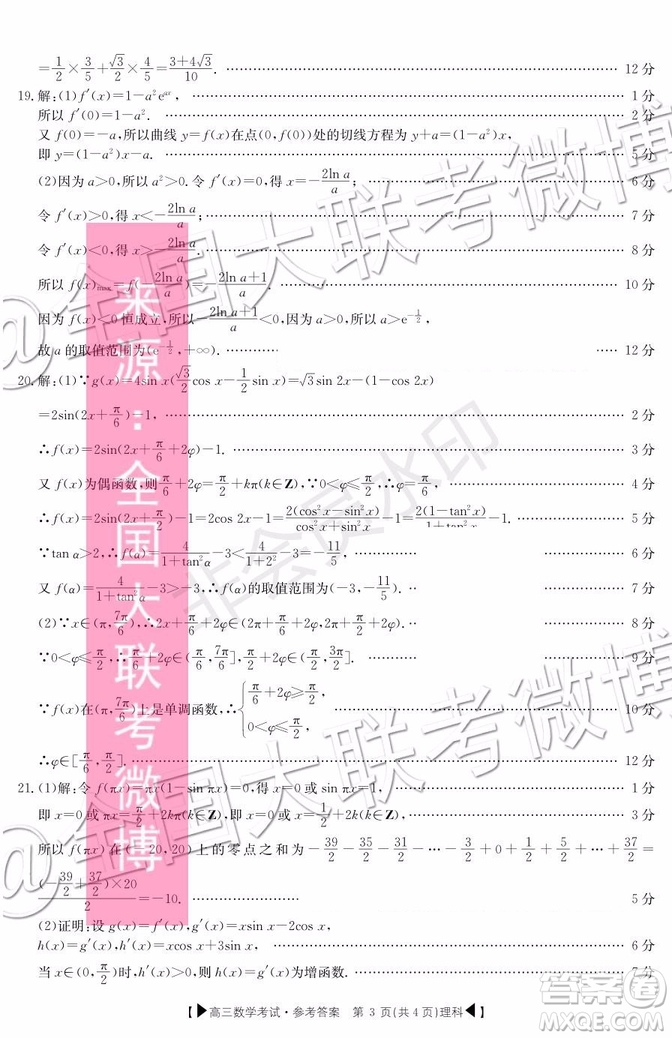 =1/2×3/5+√3/2×4/5=(3+4√3)/10. 12分
19.解:(1)f′(x)=1-a²e^{ax}, 1分
所以f′(0)=1-a². 2分
又f(0)=-a,所以曲线y=f(x)在点(0,f(0))处的切线方程为y+a=(1-a²)x,
即y=(1-a²)x-a. 5分
(2)因为a>0,所以a²>0.令f′(x)=0,得x=-2ln a/a; 6分
令f′(x)>0,得x<-2ln a/a; 7分
令f′(x)<0,得x>-2ln a/a. 8分
所以f(x)max=f(-2ln a/a)=-(2ln a+1)/a. 10分
因为f(x)<0恒成立,所以-(2ln a+1)/a<0,所以a>e^{-1/2},
故a的取值范围为(e^{-1/2},+∞). 12分
20.解:(1)∵g(x)=4sin x(√3/2cos x-1/2sin x)=√3sin 2x-(1-cos 2x)
=2sin(2x+π/6)-1, 2分
∴f(x)=2sin(2x+π/6+2φ)-1. 3分
又f(x)为偶函数,则π/6+2φ=π/2+kπ(k∈Z),∵0<φ≤π/2,∴φ=π/6. 4分
∴f(x)=2sin(2x+π/2)-1=2cos 2x-1=2(cos²x-sin²x)/(cos²x+sin²x)-1=2(1-tan²x)/(1+tan²x)-1. 5分
∵tan α>2,∴f(α)=4/(1+tan²α)-3<4/(1+2²)-3=-11/5. 6分
又f(α)=4/(1+tan²α)-3>-3,∴f(α)的取值范围为(-3,-11/5). 7分
(2)∵x∈(π,7π/6),∴2x+π/6+2φ∈(π/6+2φ,π/2+2φ). 8分
∵0<φ≤π/2,∴π/6+2φ∈(π/6,7π/6],π/2+2φ∈(π/2,3π/2]. 9分
∵f(x)在(π,7π/6)上是单调函数,∴{π/6+2φ≥π/2, 0<φ≤π/2, 10分
∴φ∈[π/6,π/2]. 12分
21.(1)解:令f(πx)=πx(1-sin πx)=0,得x=0或sin πx=1, 1分
即x=0或πx=π/2+2kπ(k∈Z),即x=0或x=1/2+2k(k∈Z). 3分
所以f(πx)在(-20,20)上的零点之和为-39/2-35/2-31/2-…-3/2+0+1/2+5/2+…+37/2=
(-39/2+37/2)×20/2=-10. 5分
(2)证明:设g(x)=f′(x),g′(x)=xsin x-2cos x,
h(x)=g′(x),h′(x)=xcos x+3sin x. 6分
当x∈(0,π/2)时,h′(x)>0,则g′(x)=h(x)为增函数. 7分
【▶高三数学考试·参考答案 第3页(共4页)理科◀】
来源:全国大联考微博
@全国大联考微博
@全国大联考微博
非会员水印
答案圈
MXQE.COM